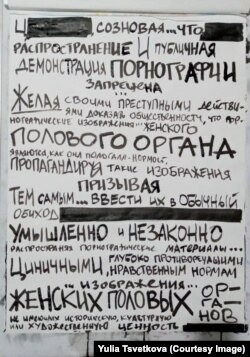 Ц , СОЗНОВАЯ...ЧТО
РАСПРОСТРАНЕНИЕ И ПУБЛИЧНАЯ
ДЕМОНСТРАЦИЯ ПОРНОГРАФИИ
ЗАПРЕЩЕНА
ЖЕЛАЯ СВОИМИ ПРЕСТУПНЫМИ ДЕЙСТВИ-
ЯМИ ДОКАЗАТЬ ОБЩЕСТВЕННОСТИ, ЧТО ПОР-
НОГРАФИЧЕСКИЕ ИЗОБРАЖЕНИЯ...ЖЕНСКОГО
ПОЛОВОГО ОРГАНА
ЯВЛЯЮТСЯ, КАК ОНА ПОЛОГАЛА-НОРМОЙ.
ПРОПАГАНДИРУЯ ТАКИЕ ИЗОБРАЖЕНИЯ
ПРИЗЫВАЯ
ТЕМ САМЫМ... ВВЕСТИ ИХ В ОБЫЧНЫЙ
ОБИХОД
УМЫШЛЕННО И НЕЗАКОННО
РАСПРОСТРАНЯЯ ПОРНОГРАФИЧЕСКИЕ МАТЕРИАЛЫ...
ЦИНИЧНЫМИ, ГЛУБОКО ПРОТИВОРЕЧАЩИМИ
НРАВСТВЕННЫМ НОРМАМ
...ИЗОБРАЖЕНИЯ...
ЖЕНСКИХ ПОЛОВЫХ ОР-
ГА-
НОВ
НЕ ИМЕЮЩИМ ИСТОРИЧЕСКУЮ, КУЛЬТУРНУЮ
ИЛИ ХУДОЖЕСТВЕННУЮ ЦЕННОСТЬ
Yulia Tsvetkova (Courtesy Image)